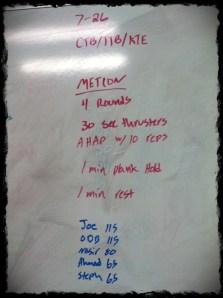 7-26
CTB/TTB/KTE
METCON
4 Rounds
30 sec thrusters
AHAP w/ 10 reps
1 min plank Hold
1 min rest
Joe 115
ODB 115
nasir 80
Ahmad 65
steph 65